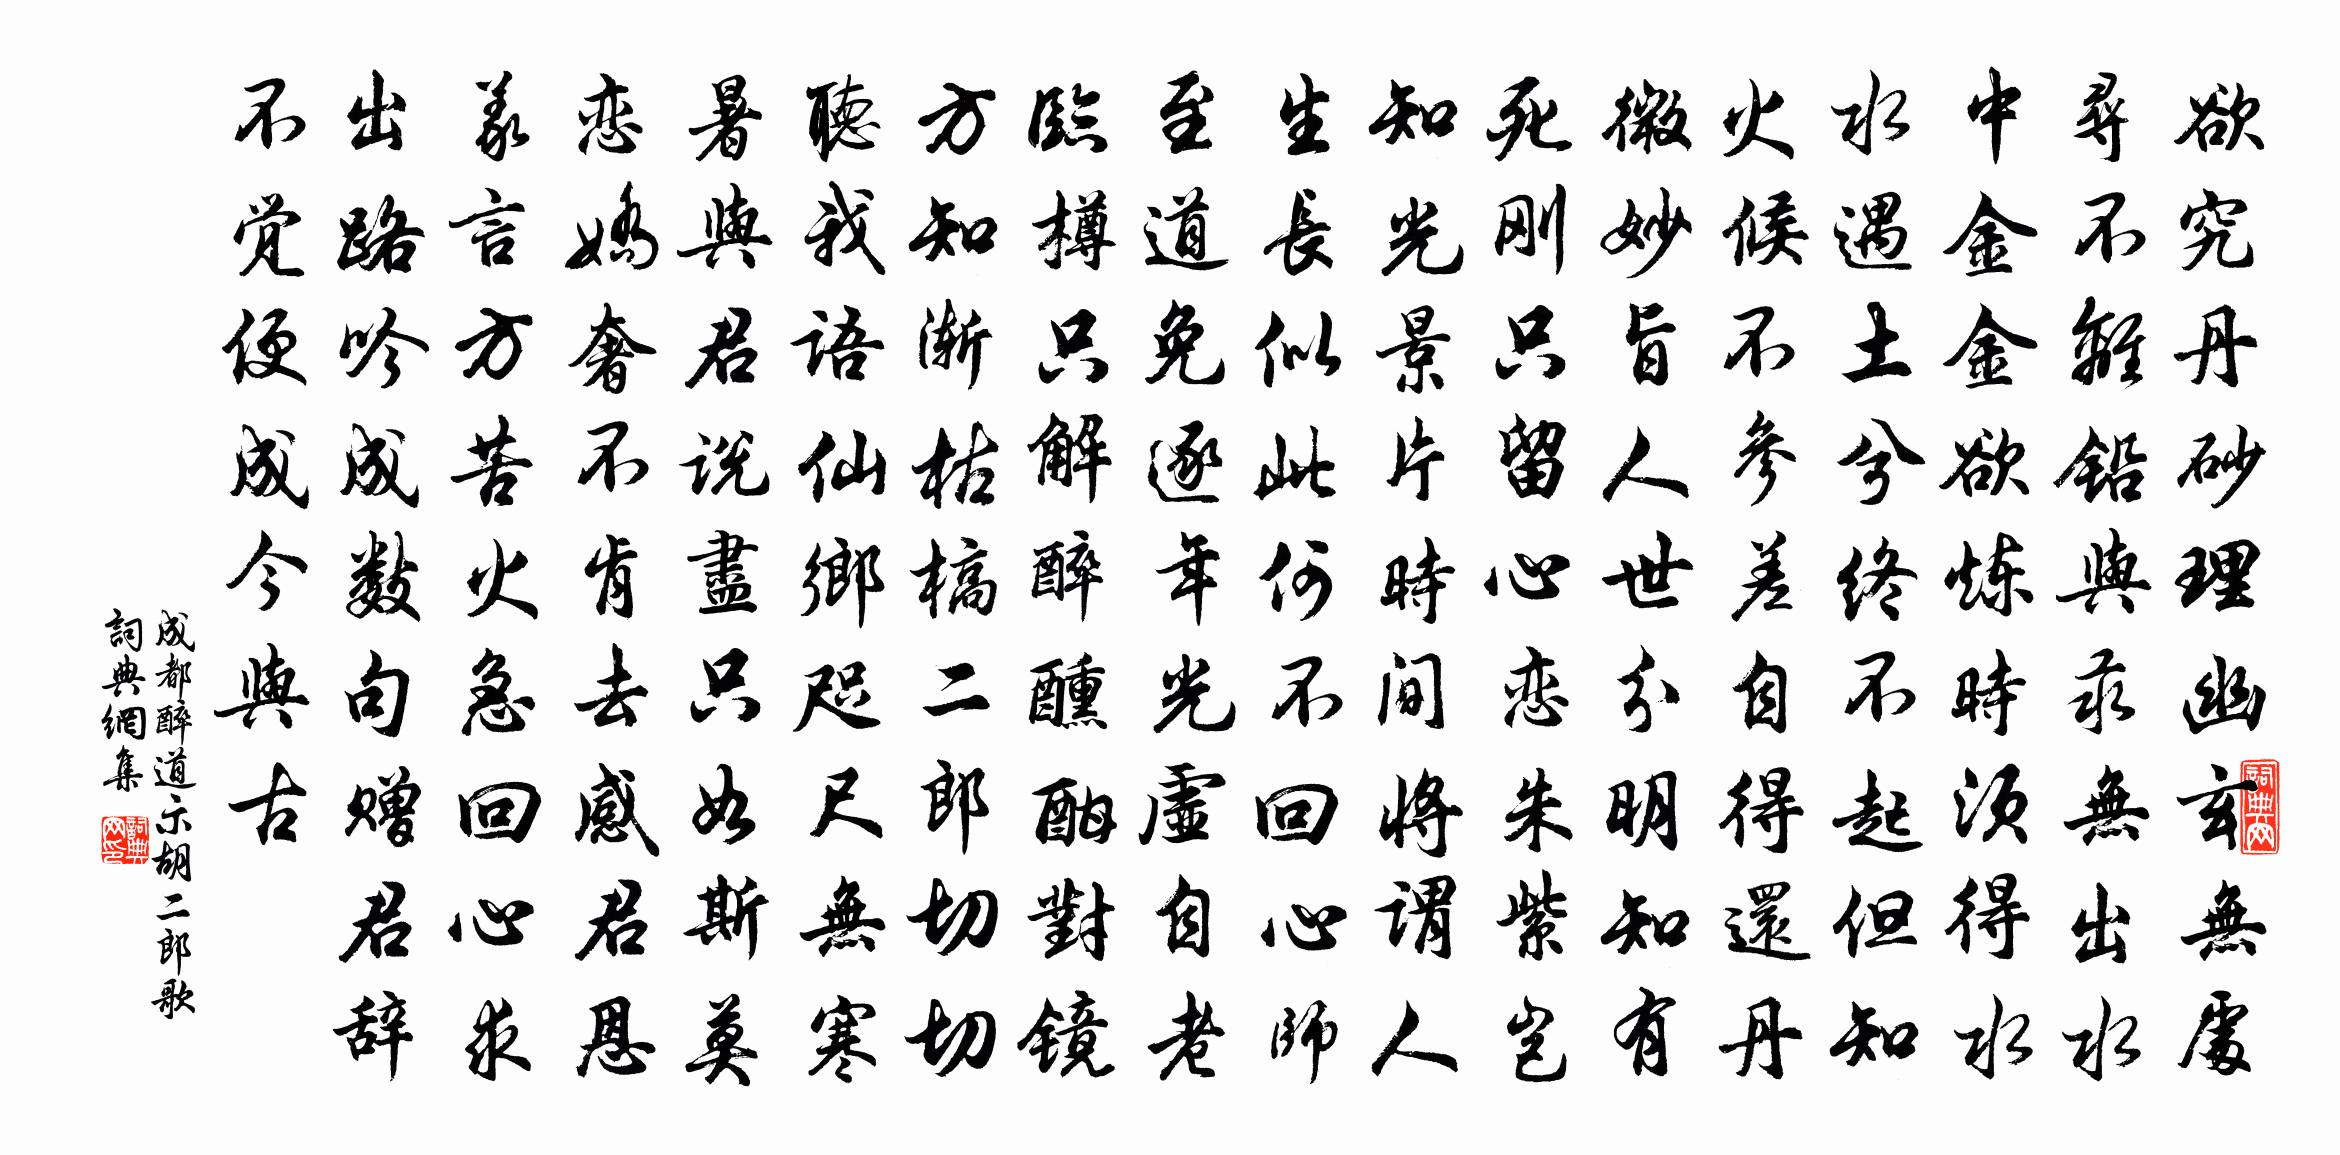 欲究丹砂理幽玄無處
尋不離鉛與汞無出水
中金金欲炼時須得水
水遇土兮終不起但知
火候不參差自得還丹
微妙旨人世分明知有
死剛只留心恋朱紫豈
知光景片時间将謂人
生長似此何不回心師
至道免逐年光虛自老
臨樽只解醉醺酣對镜
方知渐枯槁二郎切切
聽我語仙鄉咫尺無寒
暑與君説盡只如斯莫
恋嬌奢不肯去感君恩
義言方苦火急回心求
出路吟成數句赠君辞
不觉便成今與古
成都醉道示胡二郎歌
詞典網集
詞典网
詞典网印